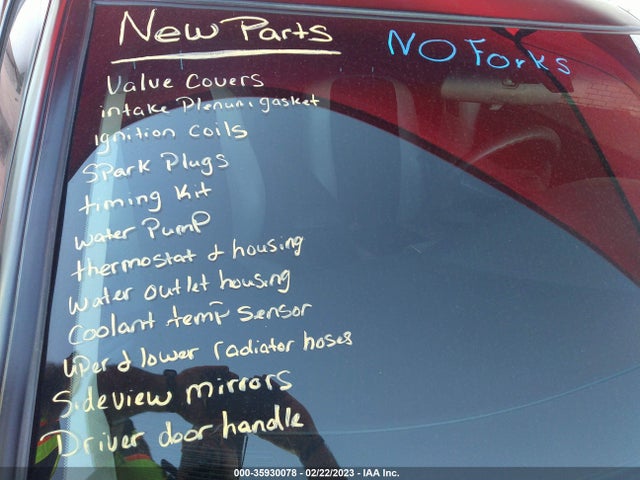 New Parts
NO Forks
Value Covers
intake Plenum, gasket
ignition coils
Spark Plugs
timing Kit
water Pump
thermostat & housing
Water outlet housing
Coolant temp sensor
UPer & lower radiator hoses
Sideview mirrors
Driver door handle
000-35930078 - 02/22/2023 - IAA Inc.